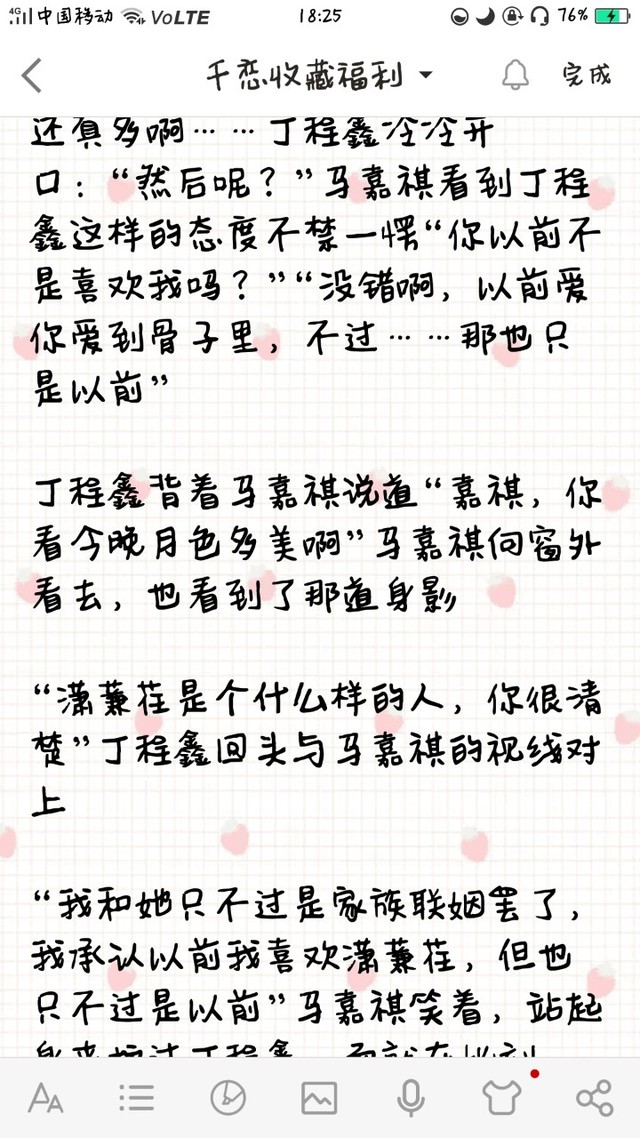 4G 中国移动 VoLTE 18:25 76%
千恋收藏福利
完成
还真多啊……丁程鑫冷冷开
口：“然后呢？”马嘉祺看到丁程
鑫这样的态度不禁一愣“你以前不
是喜欢我吗？”“没错啊，以前爱
你爱到骨子里，不过……那也只
是以前”
丁程鑫背着马嘉祺说道“嘉祺，你
看今晚月色多美啊”马嘉祺向窗外
看去，也看到了那道身影
“潇蒹葭是个什么样的人，你很清
楚”丁程鑫回头与马嘉祺的视线对
上
“我和她只不过是家族联姻罢了，
我承认以前我喜欢潇蒹葭，但也
只不过是以前”马嘉祺笑着，站起
AA